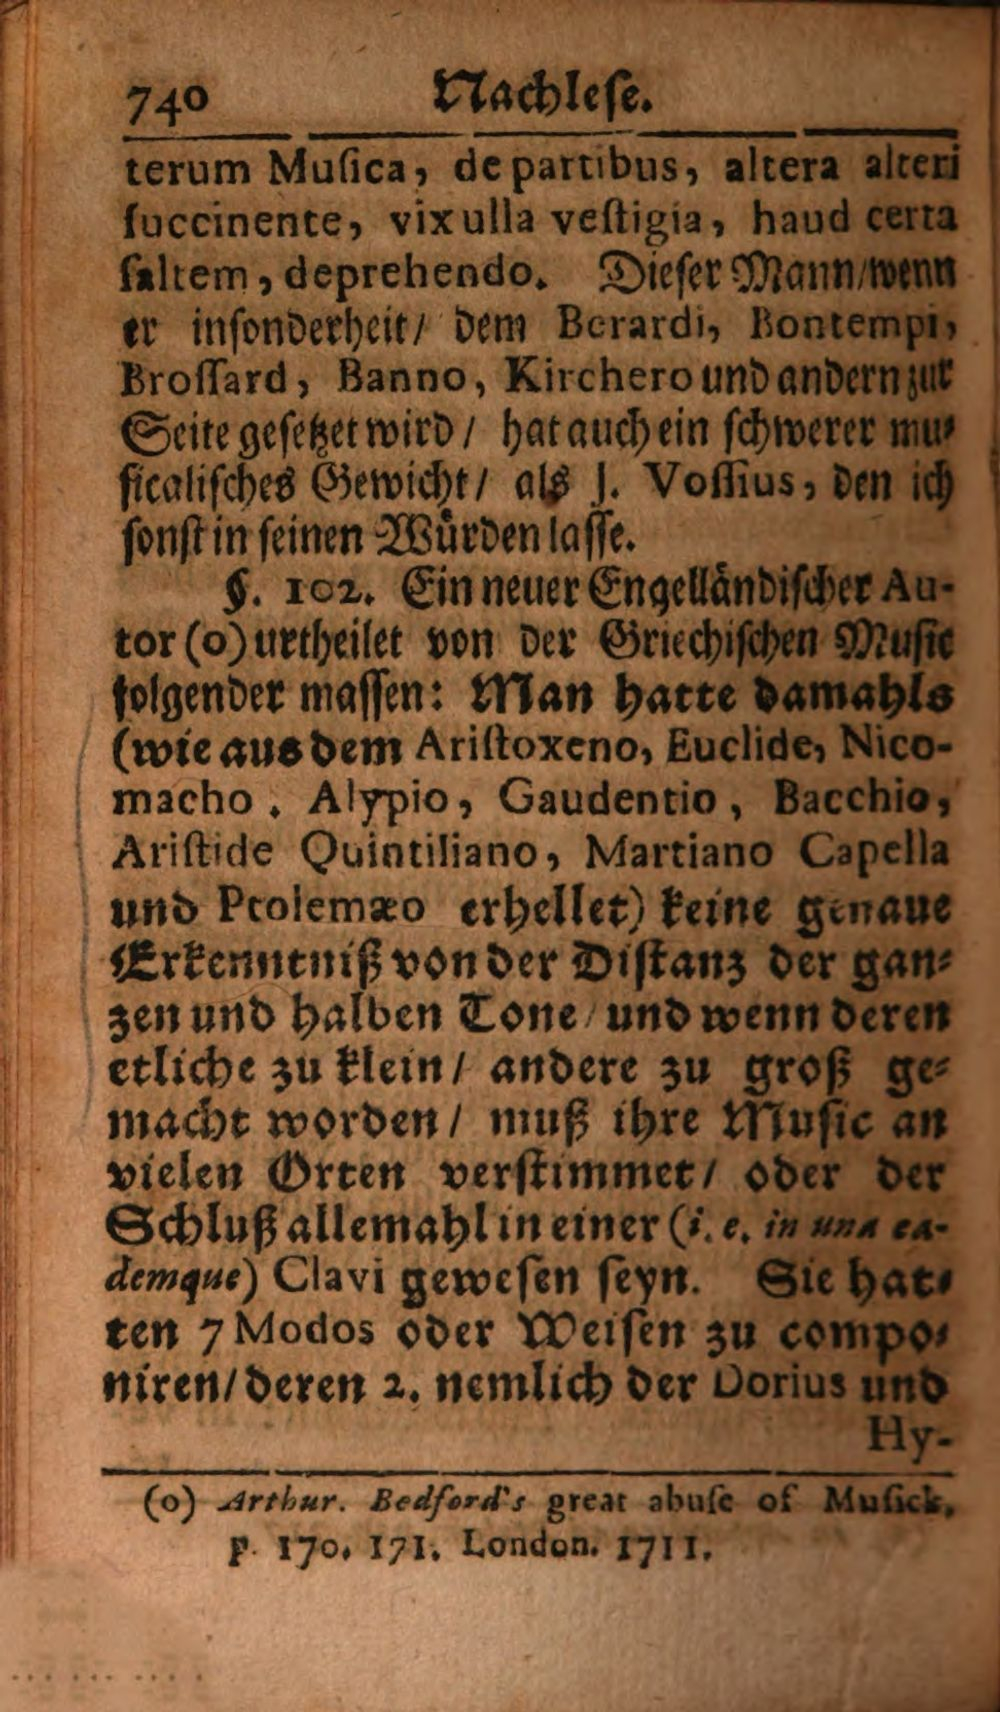 740 Nachleſe.
terum Muſica, de partibus, altera alteri
ſuccinente, vix ulla veſtigia, haud certa
ſaltem, deprehendo. Dieſer Mann/wenn
er inſonderheit/ dem Berardi, Bontempi,
Broſſard, Banno, Kirchero und andern zur
Seite geſetzet wird/ hat auch ein ſchwerer mu-
ſicaliſches Gewicht/ als J. Voſſius, den ich
ſonſt in ſeinen Würden laſſe.
§. 102. Ein neuer Engelländiſcher Au-
tor (o) urtheilet von der Griechiſchen Muſic
folgender maſſen: Man hatte damahls
(wie aus dem Ariſtoxeno, Euclide, Nico-
macho, Alypio, Gaudentio, Bacchio,
Ariſtide Quintiliano, Martiano Capella
und Ptolemæo erhellet) keine genaue
Erkenntniß von der Diſtanz der gan-
zen und halben Tone/ und wenn deren
etliche zu klein/ andere zu groß ge-
macht worden/ muß ihre Muſic an
vielen Orten verſtimmet/ oder der
Schluß allemahl in einer (i. e. in una ea-
demque) Clavi geweſen ſeyn. Sie hat-
ten 7 Modos oder Weiſen zu compo-
niren/ deren 2. nemlich der Dorius und
Hy-
(o) Arthur. Bedford's great abuſe of Muſick,
p. 170. 171. London. 1711.